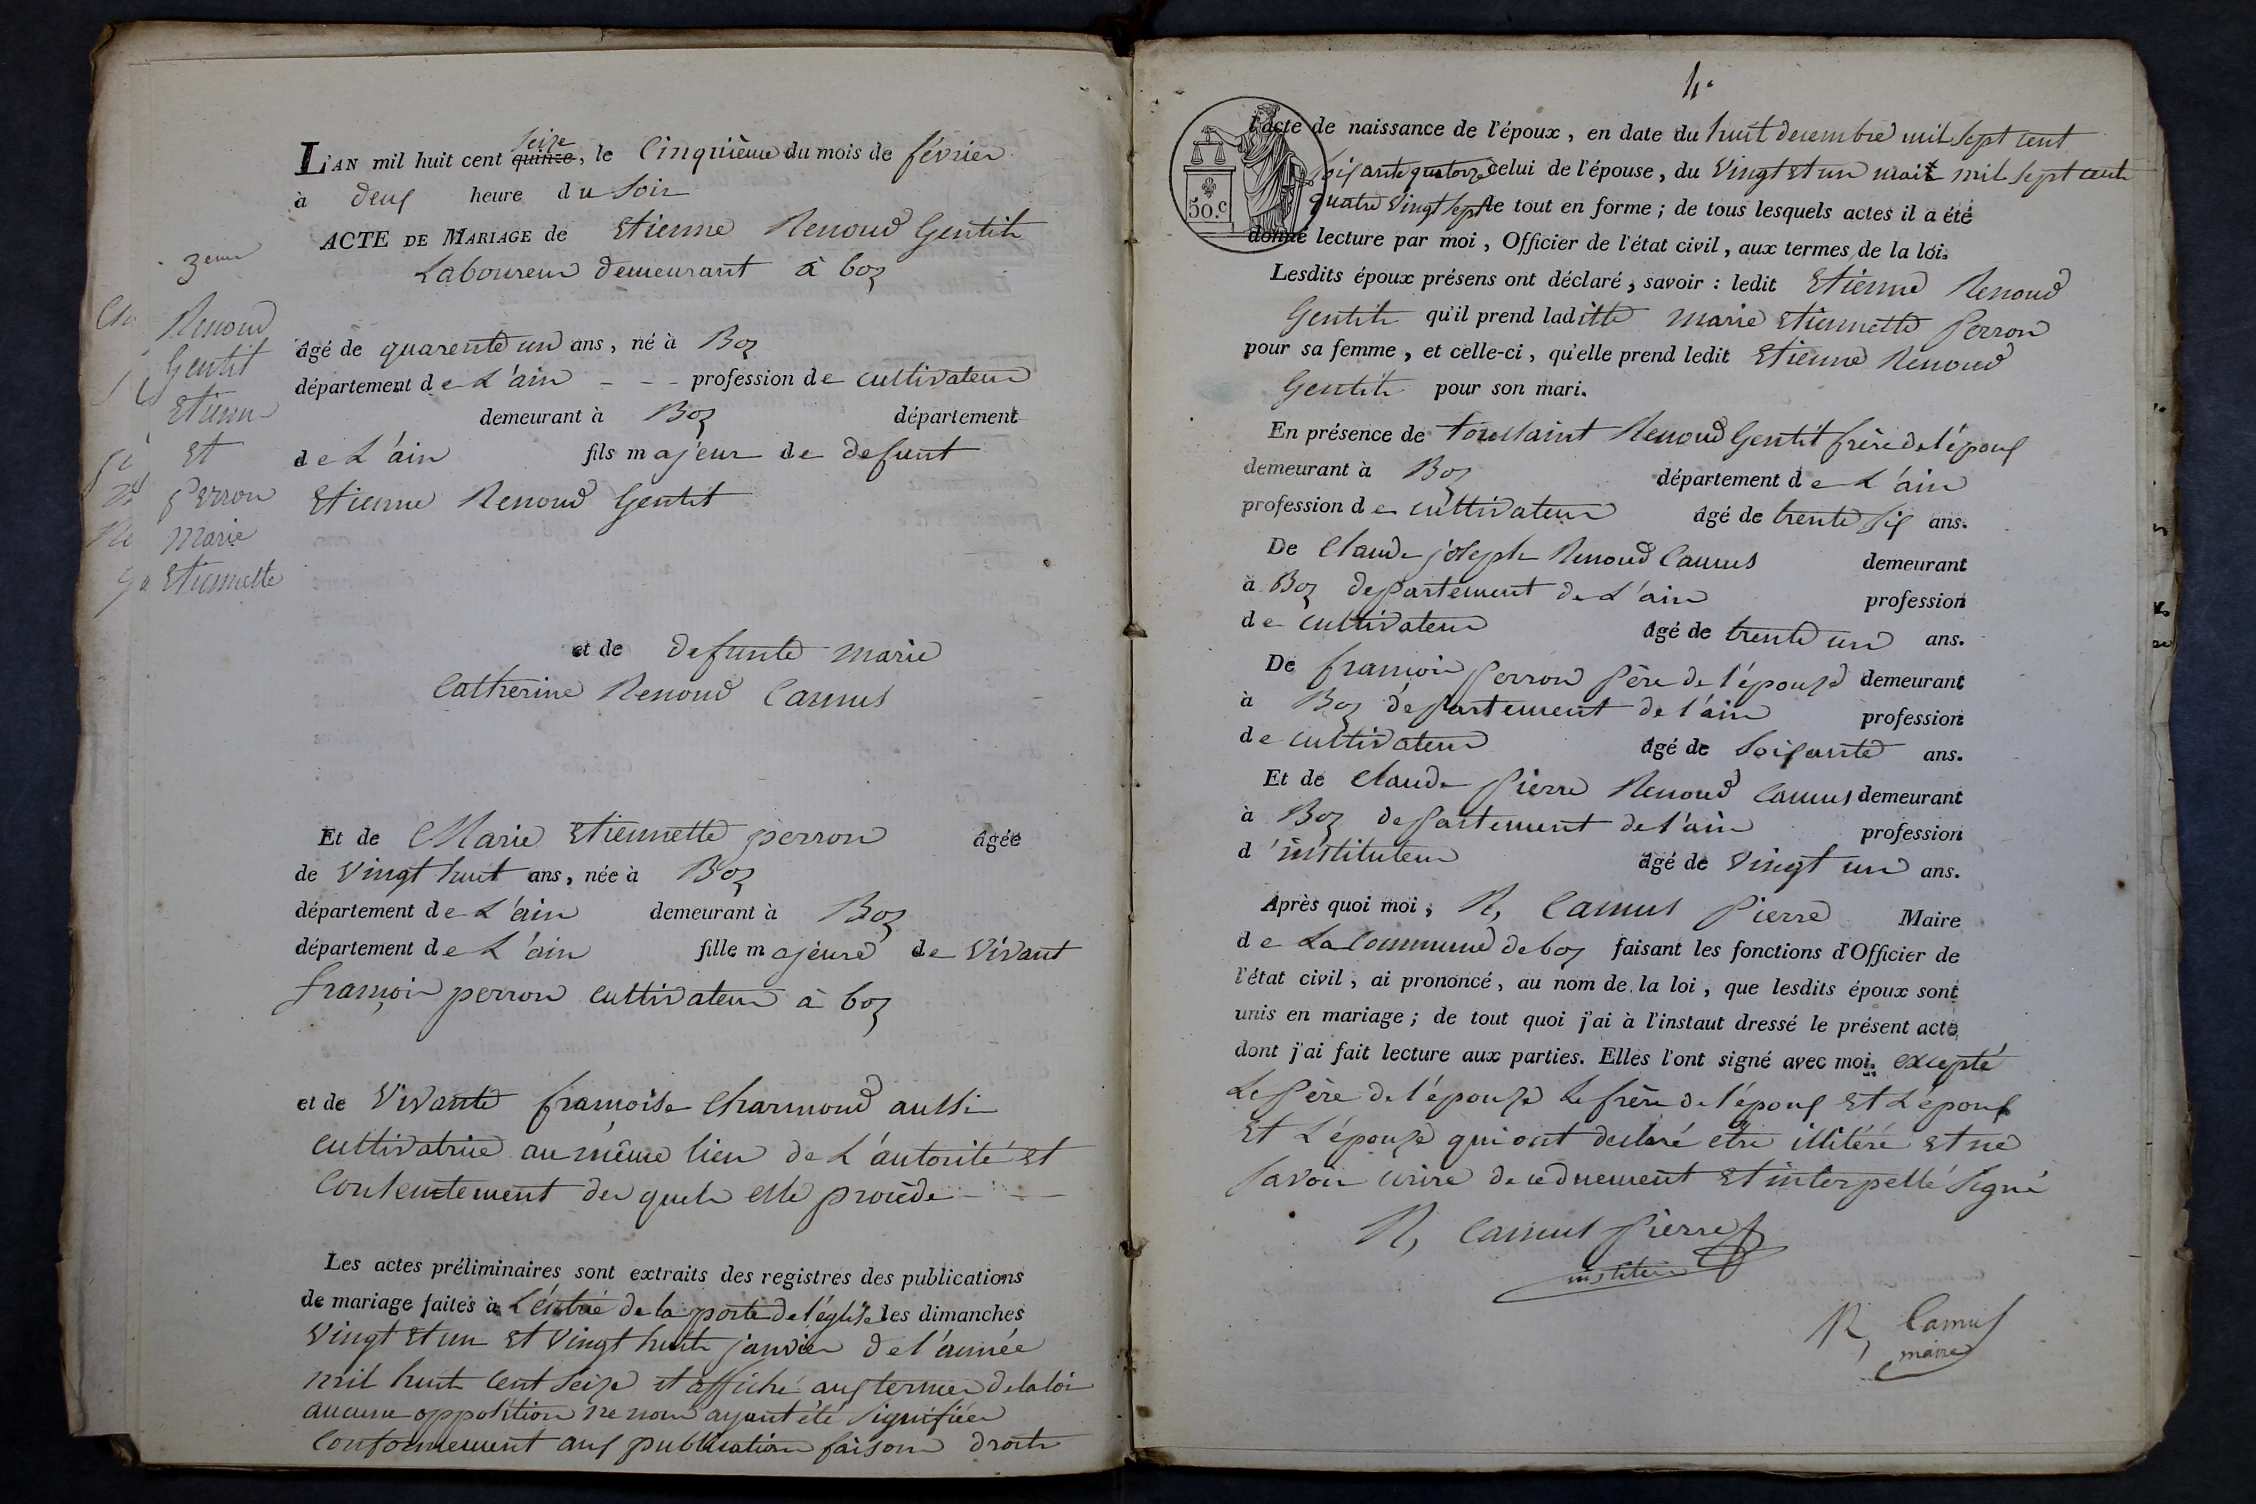 L'AN mil huit cent quinze seize, le Cinquième du mois de février
à deux heure du Soir
ACTE DE MARIAGE de Etienne Renoud Gentit
Laboureur demeurant à boz
3eme
Renoud
Gentit
Etienne
et
perron
Marie
Etiennette
âgé de quarente un ans, né à Boz
département de L'ain - - - profession de cultivateur
demeurant à Boz département
de L'ain fils majeur de defunt
Etienne Renoud Gentit
et de defunte marie
Catherine Renoud Camus
Et de Marie Etiennette perron âgée
de Vingt huit ans, née à Boz
département de L'ain demeurant à Boz
département de L'ain fille majeure de Vivant
françois perron cultivateur à boz
et de Vivante françoise Charmond aussi
cultivatrice au même lieu de L'autorité et
Contentement des quels elle procède - - -
Les actes préliminaires sont extraits des registres des publications
de mariage faites à L'éntrée de la porte de l'église les dimanches
Vingt et un et Vingt huit janvier de l'année
mil huit Cent Seize et affiché aux termes de la loi
aucune opposition ne nous ayant été Signifiées
Conformement aux publications faisons droits
4e
l'acte de naissance de l'époux, en date du huit decembre mil Sept cent
Soixante quatorze celui de l'épouse, du Vingt et un mais mil Sept cent
quatre Vingt Sept le tout en forme; de tous lesquels actes il a été
donné lecture par moi, Officier de l'état civil, aux termes de la loi.
50.c
Lesdits époux présens ont déclaré, savoir: ledit Etienne Renoud
Gentit qu'il prend laditte marie Etiennette perron
pour sa femme, et celle-ci, qu'elle prend ledit Etienne Renoud
Gentit pour son mari.
En présence de toussaint Renoud Gentit frère de l'époux
demeurant à Boz département de L'ain
profession de cultivateur âgé de trente Six ans.
De Claude joseph Renoud Camus demeurant
à Boz departement de L'ain profession
de cultivateur âgé de trente un ans.
De françois perron père de l'épouze demeurant
à Boz département de l'ain profession
de cultivateur âgé de Soixante ans.
Et de Claude pierre Renoud Camus demeurant
à Boz departement de l'ain profession
d'instituteur âgé de vingt un ans.
Après quoi moi, R, Camus pierre Maire
de La Commune de boz faisant les fonctions d'Officier de
l'état civil, ai prononcé, au nom de la loi, que lesdits époux sont
unis en mariage; de tout quoi j'ai à l'instaut dressé le présent acte
dont j'ai fait lecture aux parties. Elles l'ont signé avec moi. excepté
Le père de l'épouze Le frère de l'époux et L'époux
et L'épouze qui ont declaré etre illitéré et ne
Savoir ecrire de ce duement et interpellé Signé
R, Camus pierre
instituteur
R, Camus
maire